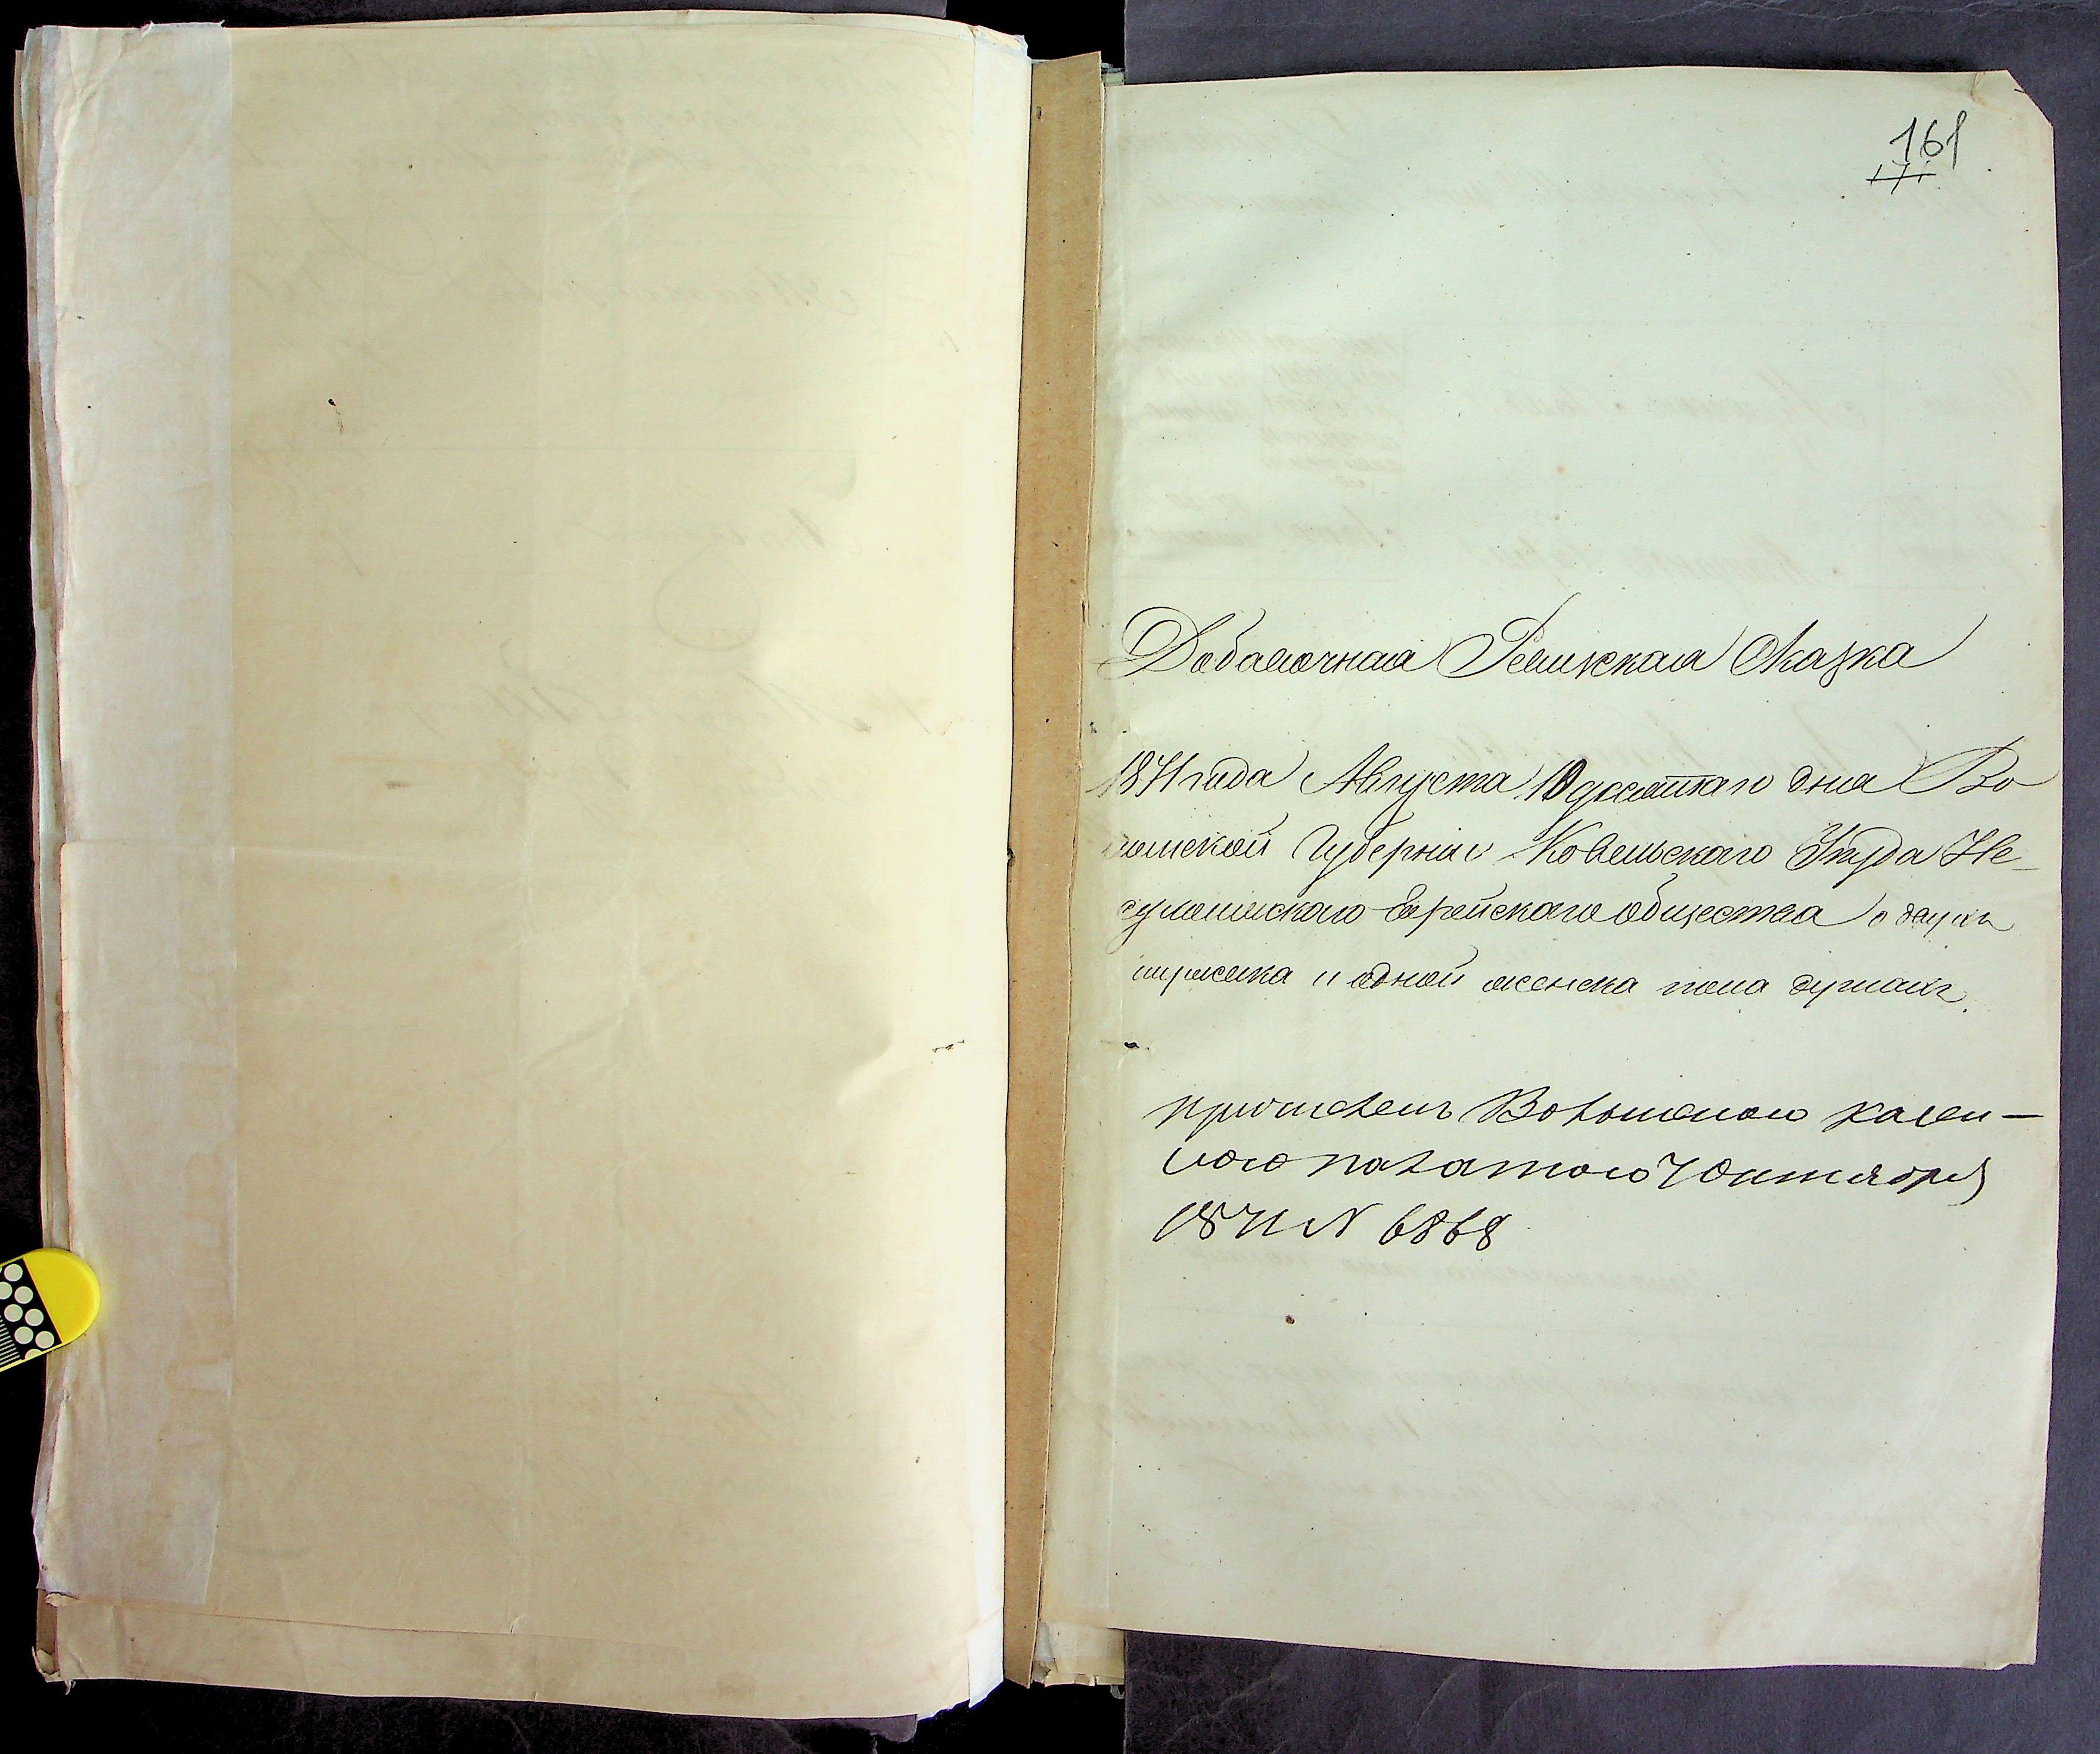 161
171
Добавочная Ревижская Сказка
1871 года Августа 10 десятаго дня Во
лынской Губерніи Ковельского Уѣзда Не
сухоижского Еврейского общества о двухъ
мужеска и одной женска пола душахъ.
Волынскою казен-
ною палатою 7 Октября
1871 N 6868